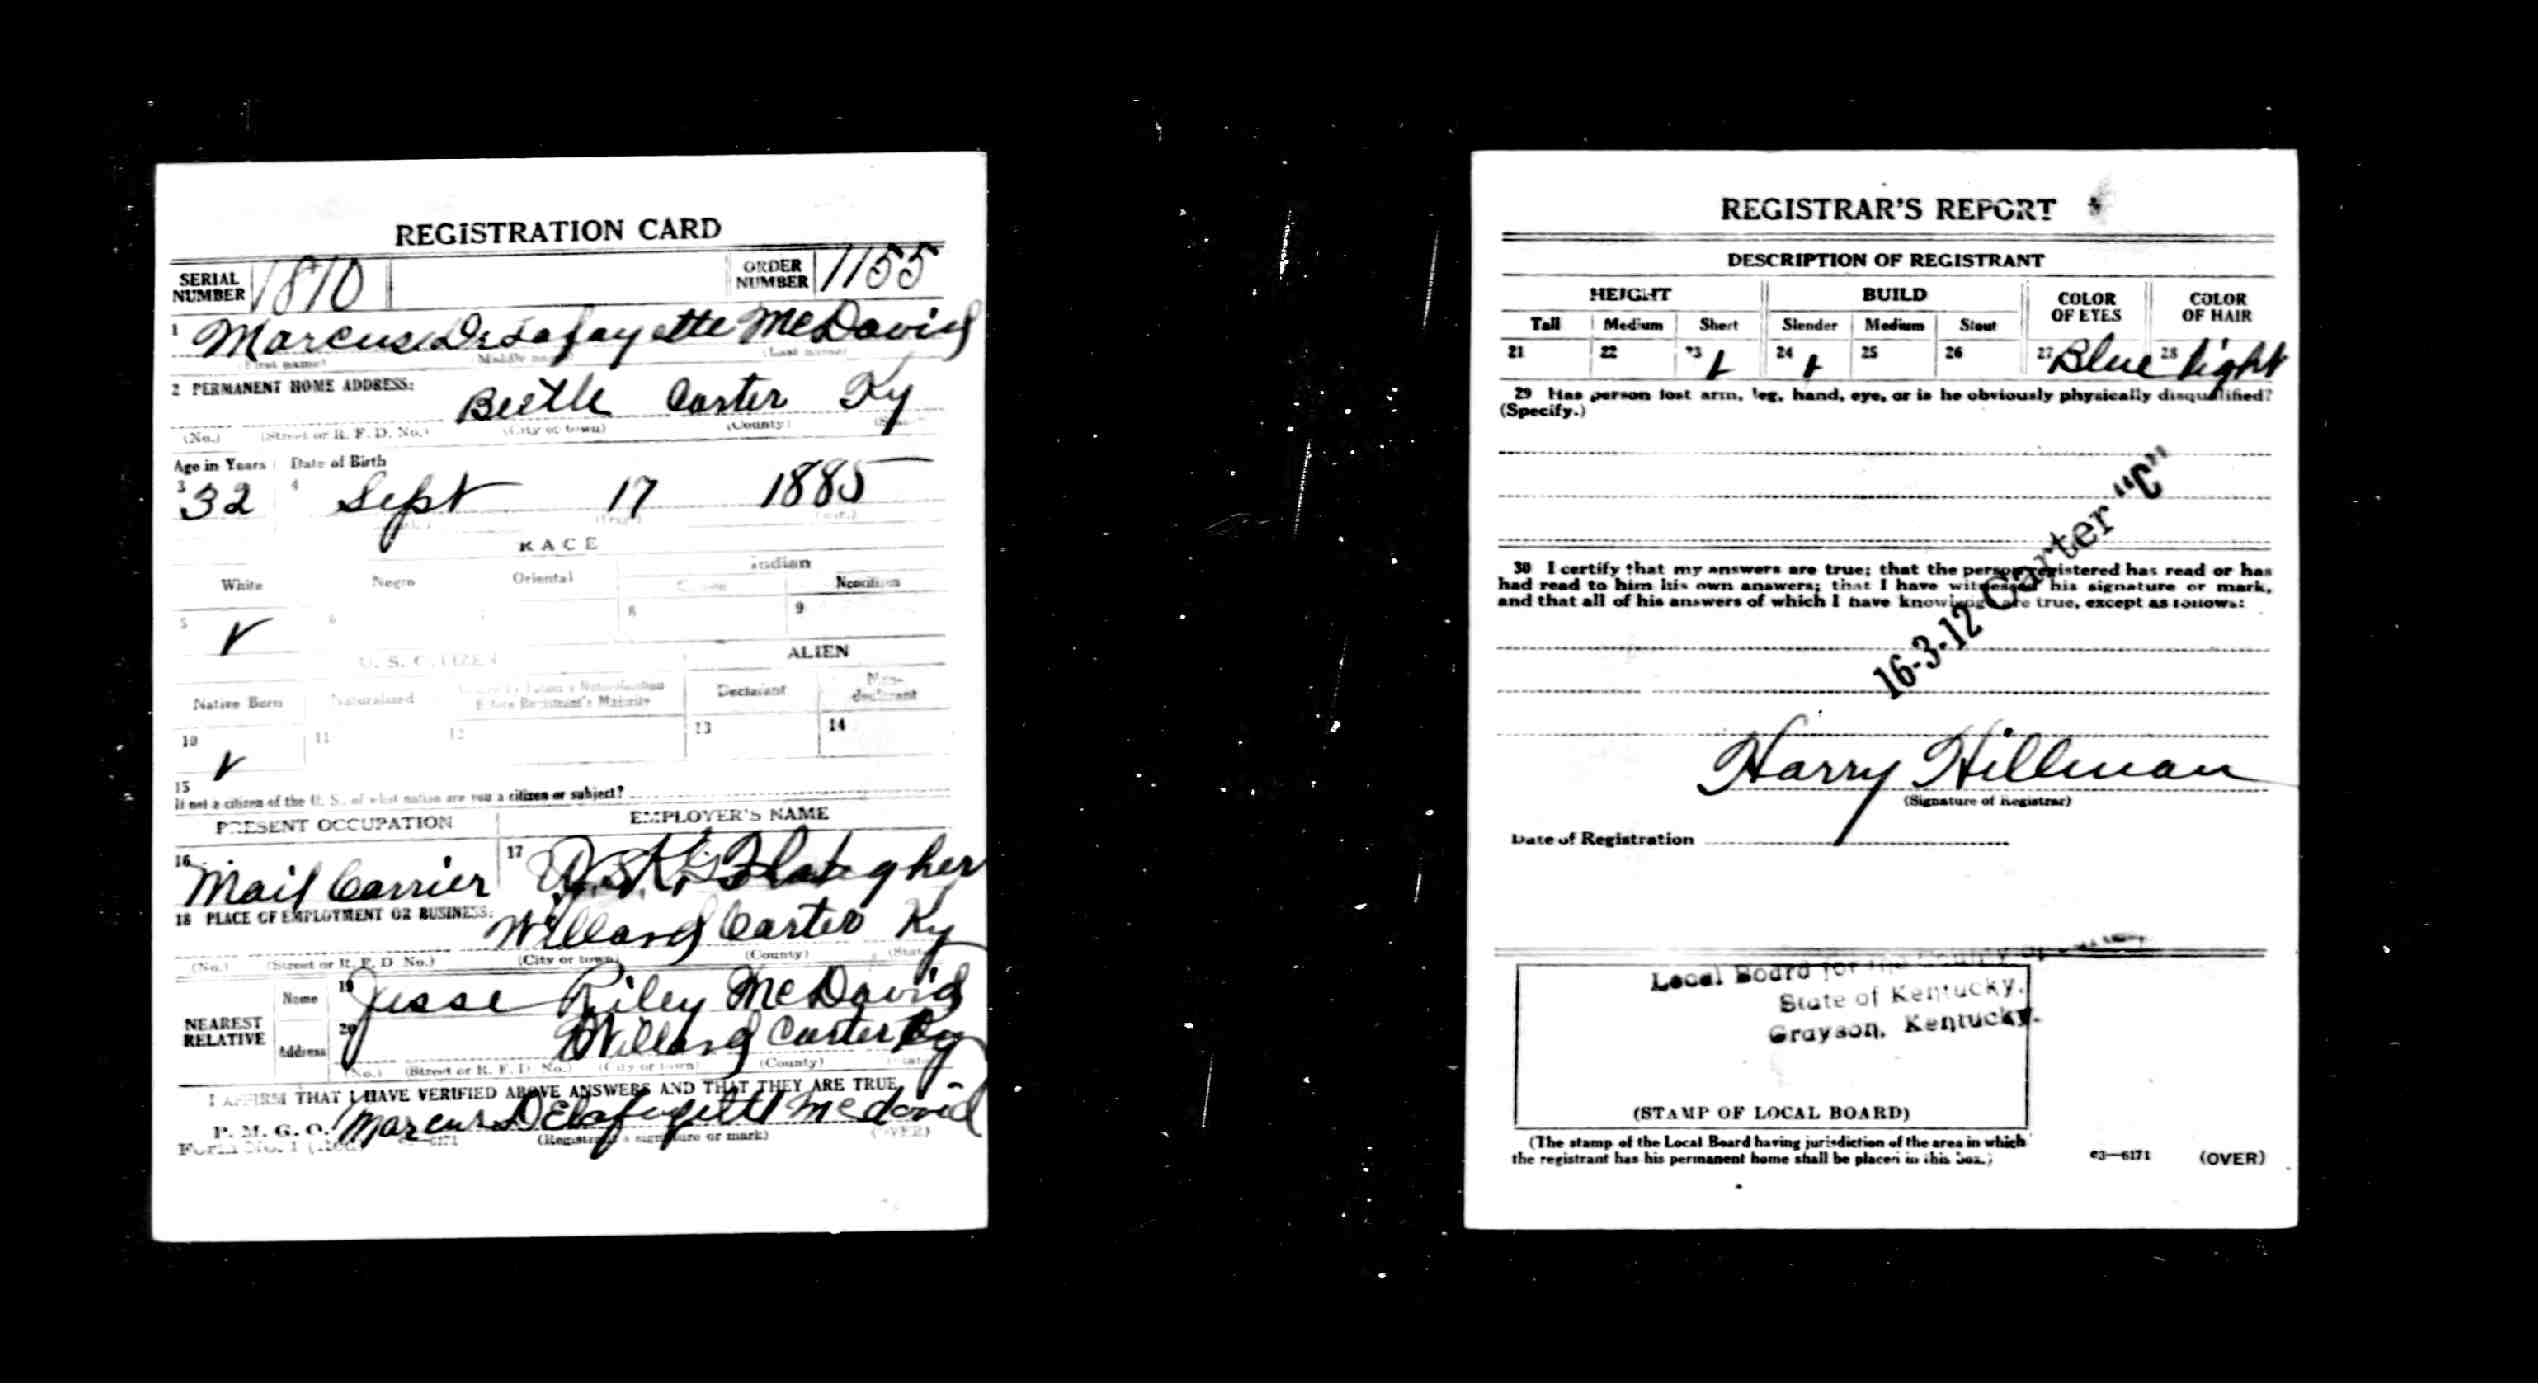 REGISTRATION CARD
SERIAL NUMBER 1810 ORDER NUMBER 1155
1 Marcus DeLafayette McDavid
(First name) (Middle name) (Last name)
2 PERMANENT HOME ADDRESS:
Beetle Carter Ky
(No.) (Street or R. F. D. No.) (City or town) (County)
Age in Years Date of Birth
3 32 4 Sept 17 1885
RACE
White Negro Oriental Indian
Citizen Noncitizen
5 ✓ 6 7 8 9
U. S. CITIZEN ALIEN
Native Born Naturalized Citizen by Father's Naturalization Before Registrant's Majority Declarant Non-declarant
10 ✓ 11 12 13 14
15
If not a citizen of the U. S., of what nation are you a citizen or subject?
PRESENT OCCUPATION EMPLOYER'S NAME
16 Mail Carrier 17 Flaugher
18 PLACE OF EMPLOYMENT OR BUSINESS:
Willard Carter Ky
(No.) (Street or R. F. D. No.) (City or town) (County) (State)
NEAREST RELATIVE
Name 19 Jesse Riley McDavid
Address 20 Willard Carter Ky
(No.) (Street or R. F. D. No.) (City or town) (County) (State)
I AFFIRM THAT I HAVE VERIFIED ABOVE ANSWERS AND THAT THEY ARE TRUE
P. M. G. O. Marcus DElafayette Mcdavid
Form No. 1 (Red) 3—6171 (Registrant's signature or mark) (OVER)
REGISTRAR'S REPORT
DESCRIPTION OF REGISTRANT
HEIGHT BUILD COLOR OF EYES COLOR OF HAIR
Tall Medium Short Slender Medium Stout
21 22 23 ✓ 24 ✓ 25 26 27 Blue 28 light
29 Has person lost arm, leg, hand, eye, or is he obviously physically disqualified?
(Specify.)
16-3-12 Carter "C"
30 I certify that my answers are true; that the person registered has read or has
had read to him his own answers; that I have witnessed his signature or mark,
and that all of his answers of which I have knowledge are true, except as follows:
Harry Hillman
(Signature of Registrar)
Date of Registration
Local Board for the County of
State of Kentucky.
Grayson, Kentucky.
(STAMP OF LOCAL BOARD)
(The stamp of the Local Board having jurisdiction of the area in which
the registrant has his permanent home shall be placed in this box.)
03—6171 (OVER)